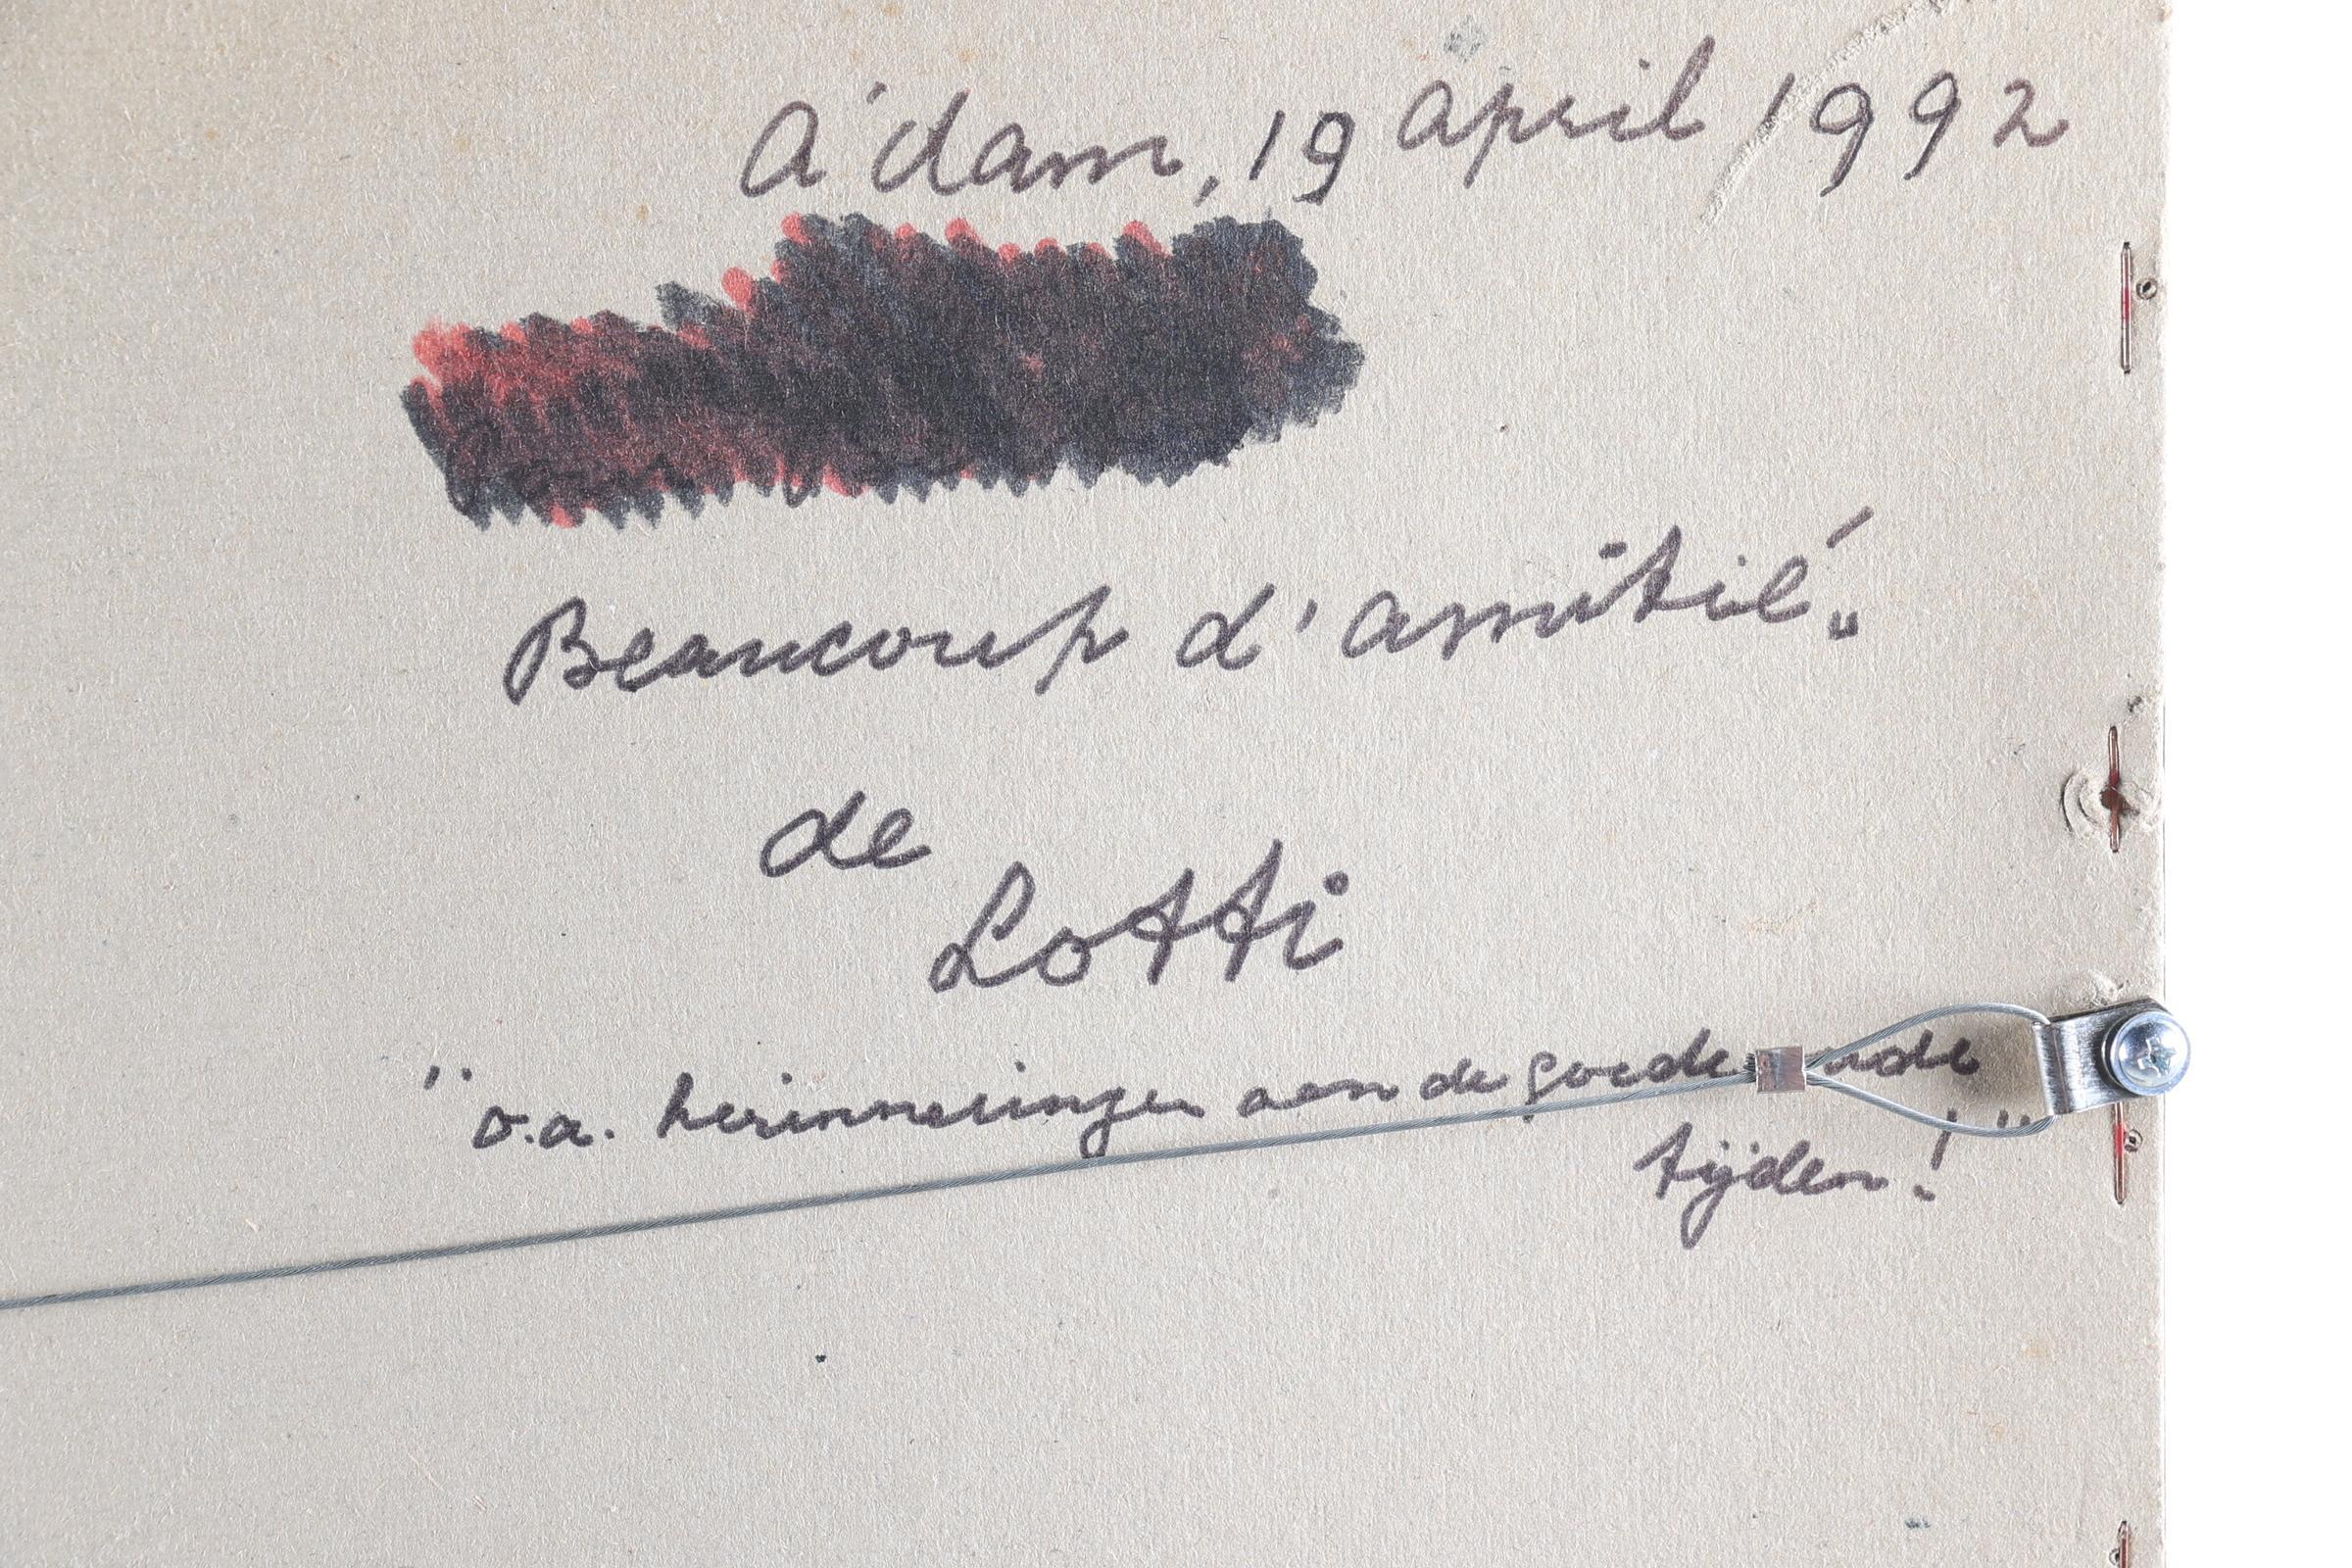 A'dam, 19 april 1992
Beaucoup d'amitié"
de
Lotti
" o.a. herinneringen aan de goede oude
tijden! "